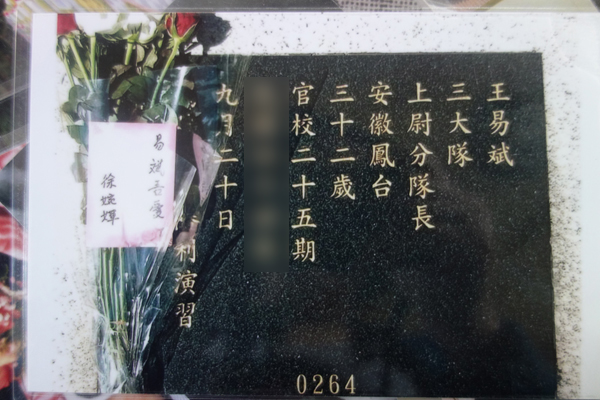 王易斌
三大隊
上尉分隊長
安徽鳳台
三十二歲
官校二十五期
九月二十日
利演習
0264
易斌吾愛
徐婉媈